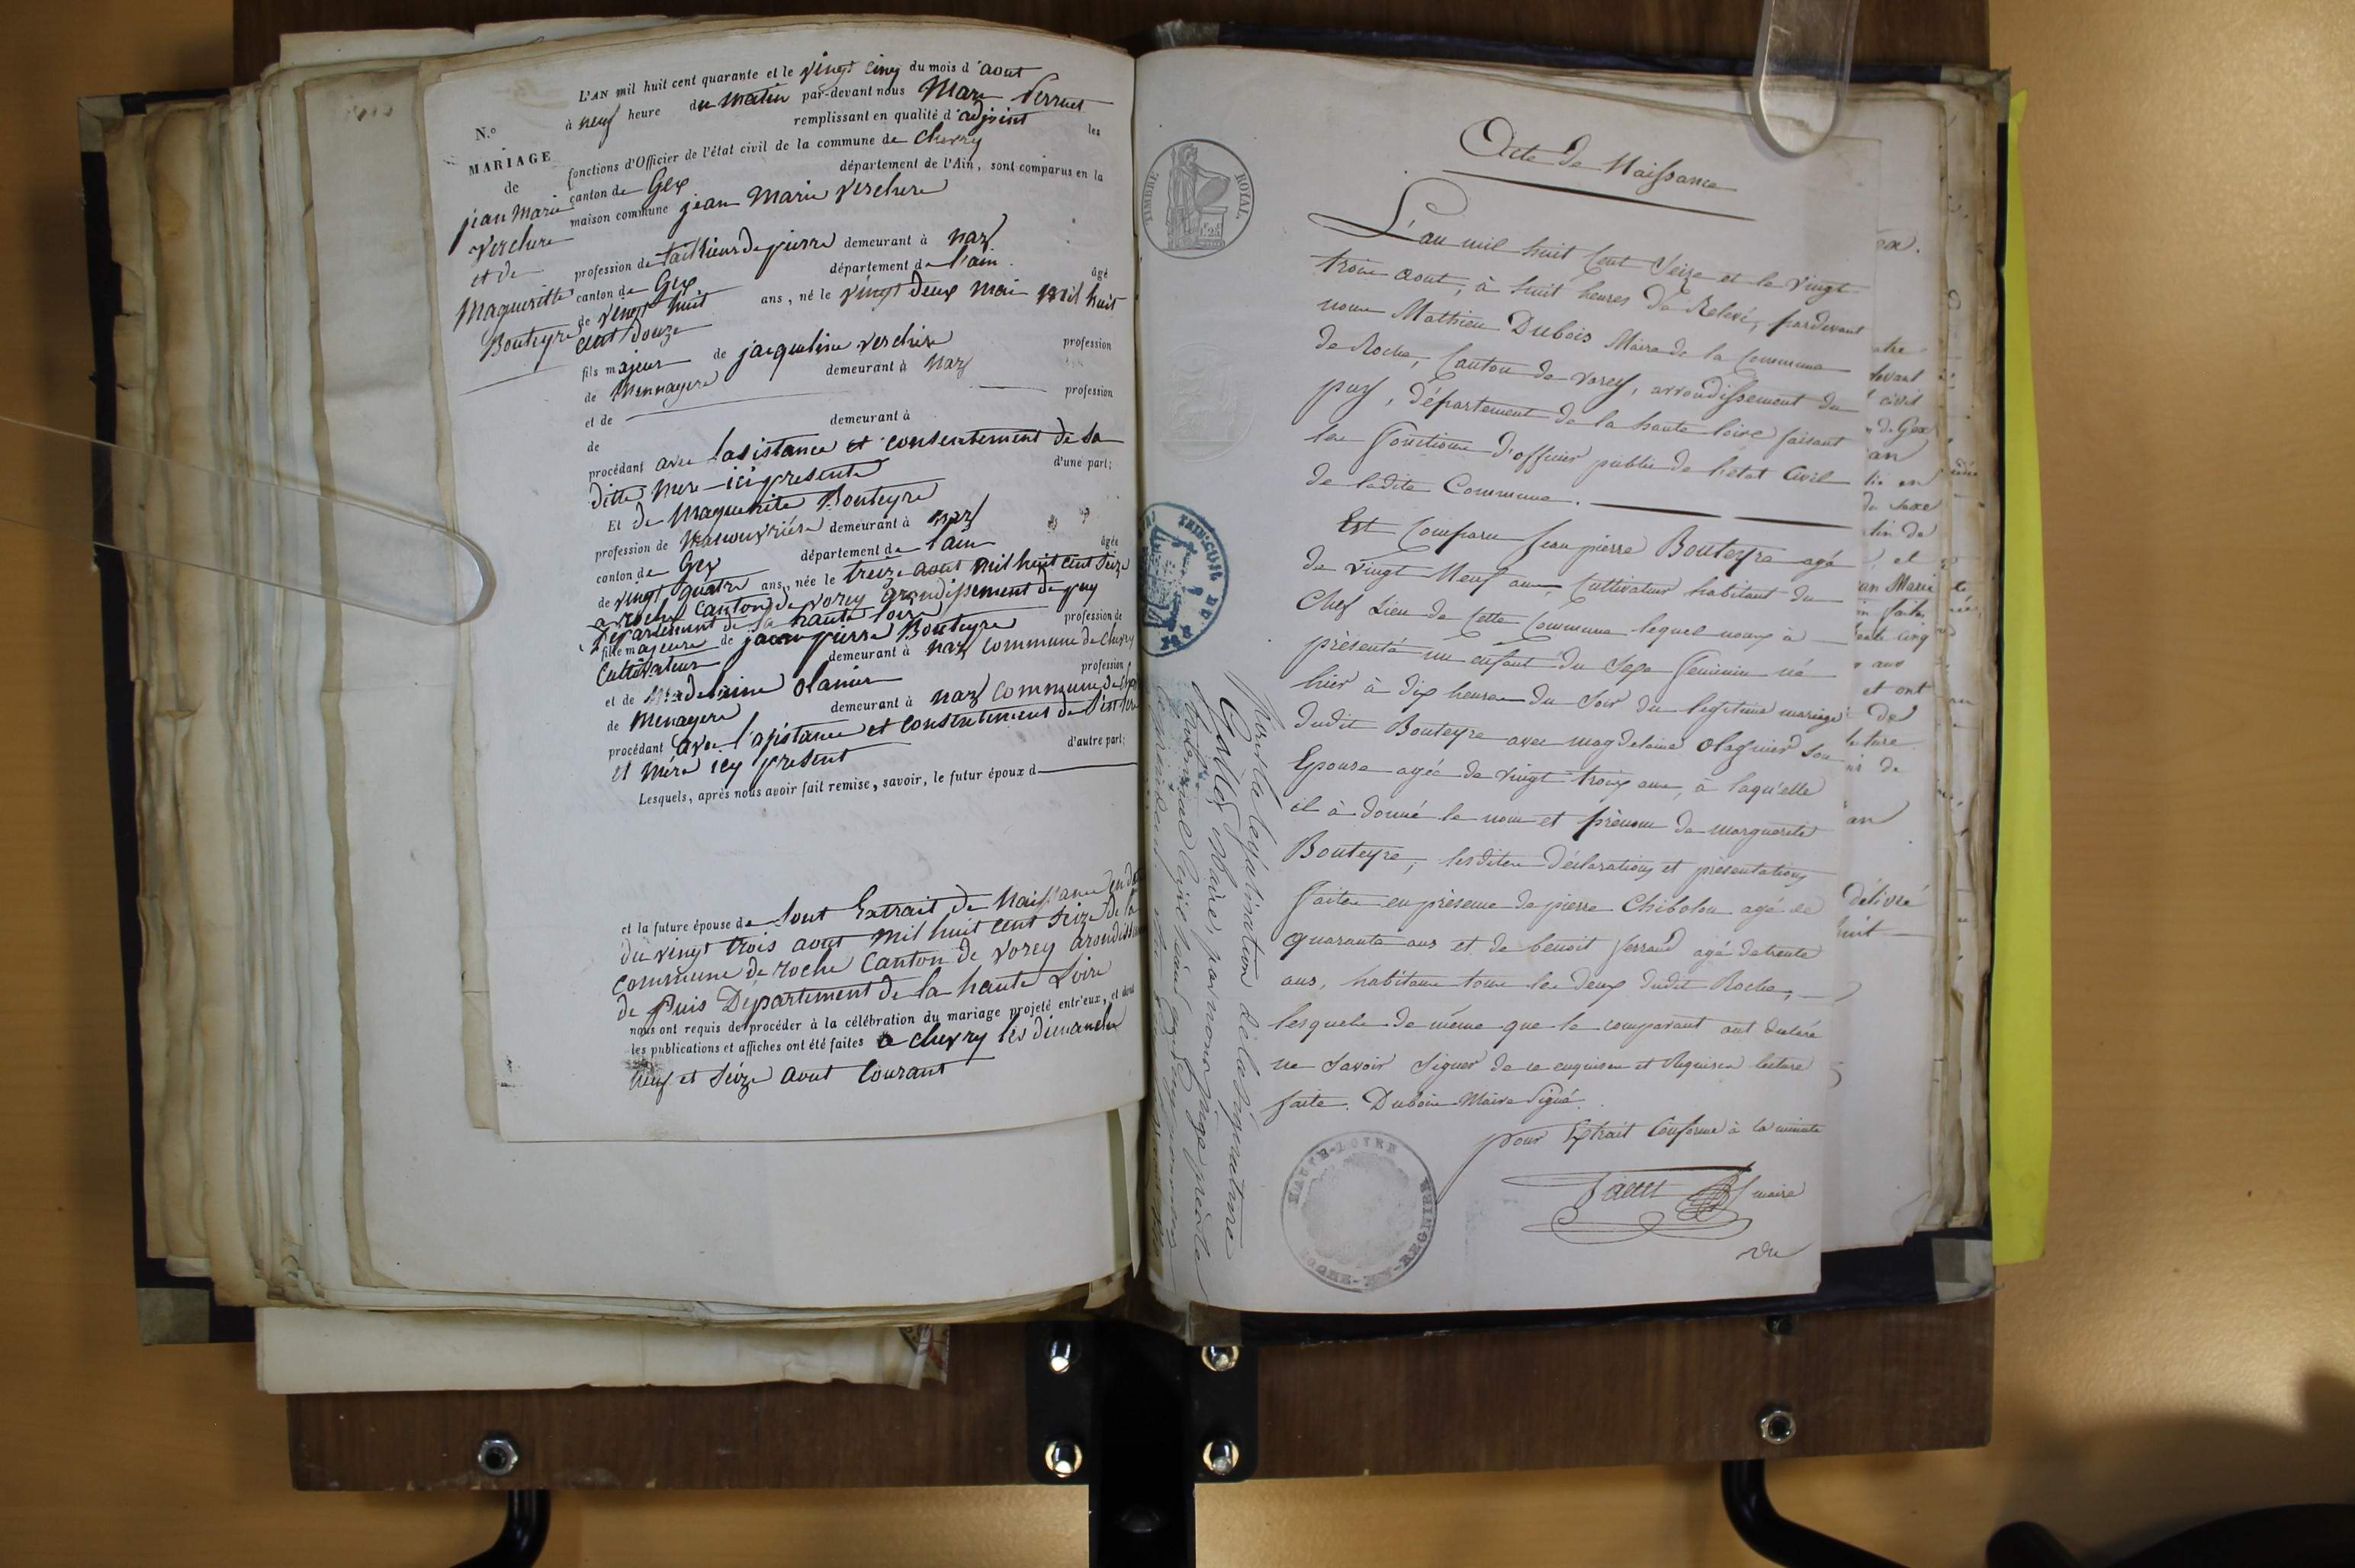 N.º
MARIAGE
de
jean Marie
Verchere
et de
Magueritte
Bouteyre
L'AN mil huit cent quarante et le vingt cinq du mois d'aout
à neuf heure du matin par-devant nous Marc Perruet
remplissant en qualité d'adjoint les
fonctions d'Officier de l'état civil de la commune de Chevry
canton de Gex département de l'Ain, sont comparus en la
maison commune jean Marie Verchere
profession de taillieur de pierre demeurant à naz
canton de Gex département de l'ain âgé
de vingt huit ans, né le vingt deux mai mil huit
cent douze
fils majeur de jacqueline verchere profession
de Mennagere demeurant à naz
et de profession
de demeurant à
procédant avec lasistance et consentement de sa
ditte mere ici presente d'une part;
Et de Maguerite Bouteyre
profession de Manouvriére demeurant à naz
canton de Gex département de l'ain âgée
de vingt quatre ans, née le treize aout mil huit cent seize
a roche Canton de vorey arondissement de puy
Département de la haute loire
fille majeure de jean pierre Bouteyre profession de
Cultivateur demeurant à naz commune de chevry
et de Madelaine olanier profession
de Menagere demeurant à naz commune de
procédant avec l'asistance et consentement de
et mére icy present d'autre part;
Lesquels, après nous avoir fait remise, savoir, le futur époux d
et la future épouse de sont Extrait de Naissance en date
du vingt trois aout mil huit cent seize de la
commune de roche Canton de vorey
de Puis Département de la haute Loire
nous ont requis de procéder à la célébration du mariage projeté entr'eux, et dont
les publications et affiches ont été faites a chevry les dimanche
neuf et seize aout Courant
TIMBRE ROYAL
Acte de Naissance
L'an mil huit Cent Seize et le vingt
trois aout, à huit heures de Relevé, pardevant
nous Mathieu Dubois Maire de la Commune
de Roche, Canton de vorey, arrondissement du
puy, département de la haute loire faisant
les fonctions d'officier public de l'état Civil
de ladite Commune.
Est Comparu Jean pierre Bouteyre agé
de vingt Neuf ans, Cultivateur habitant du
Chef Lieu de Cette Commune lequel nous à
présenté un enfant du Sexe féminin né
hier à dix heures du Soir du legitime mariage
dudit Bouteyre avec magdelaine olagnier Son
Epouse agée de vingt trois ans, à laquelle
il à donné le nom et prénom de marguerite
Bouteyre, lesdites déclarations et présentations
faites en présence de pierre Chibolon agé de
quarante ans et de benoit ferrand agé de trente
ans, habitans tous les deux dudit Roche,
lesquels de même que le comparant ont déclaré
ne Savoir Signer de ce enquis et Requis lecture
faite. Dubois Maire Signé.
pour Extrait Conforme à la minute
maire
vu
HAUTE-LOIRE
ROCHE-EN-REGNIER
Vu pour la legalisation de la signature
maire, par nous juge